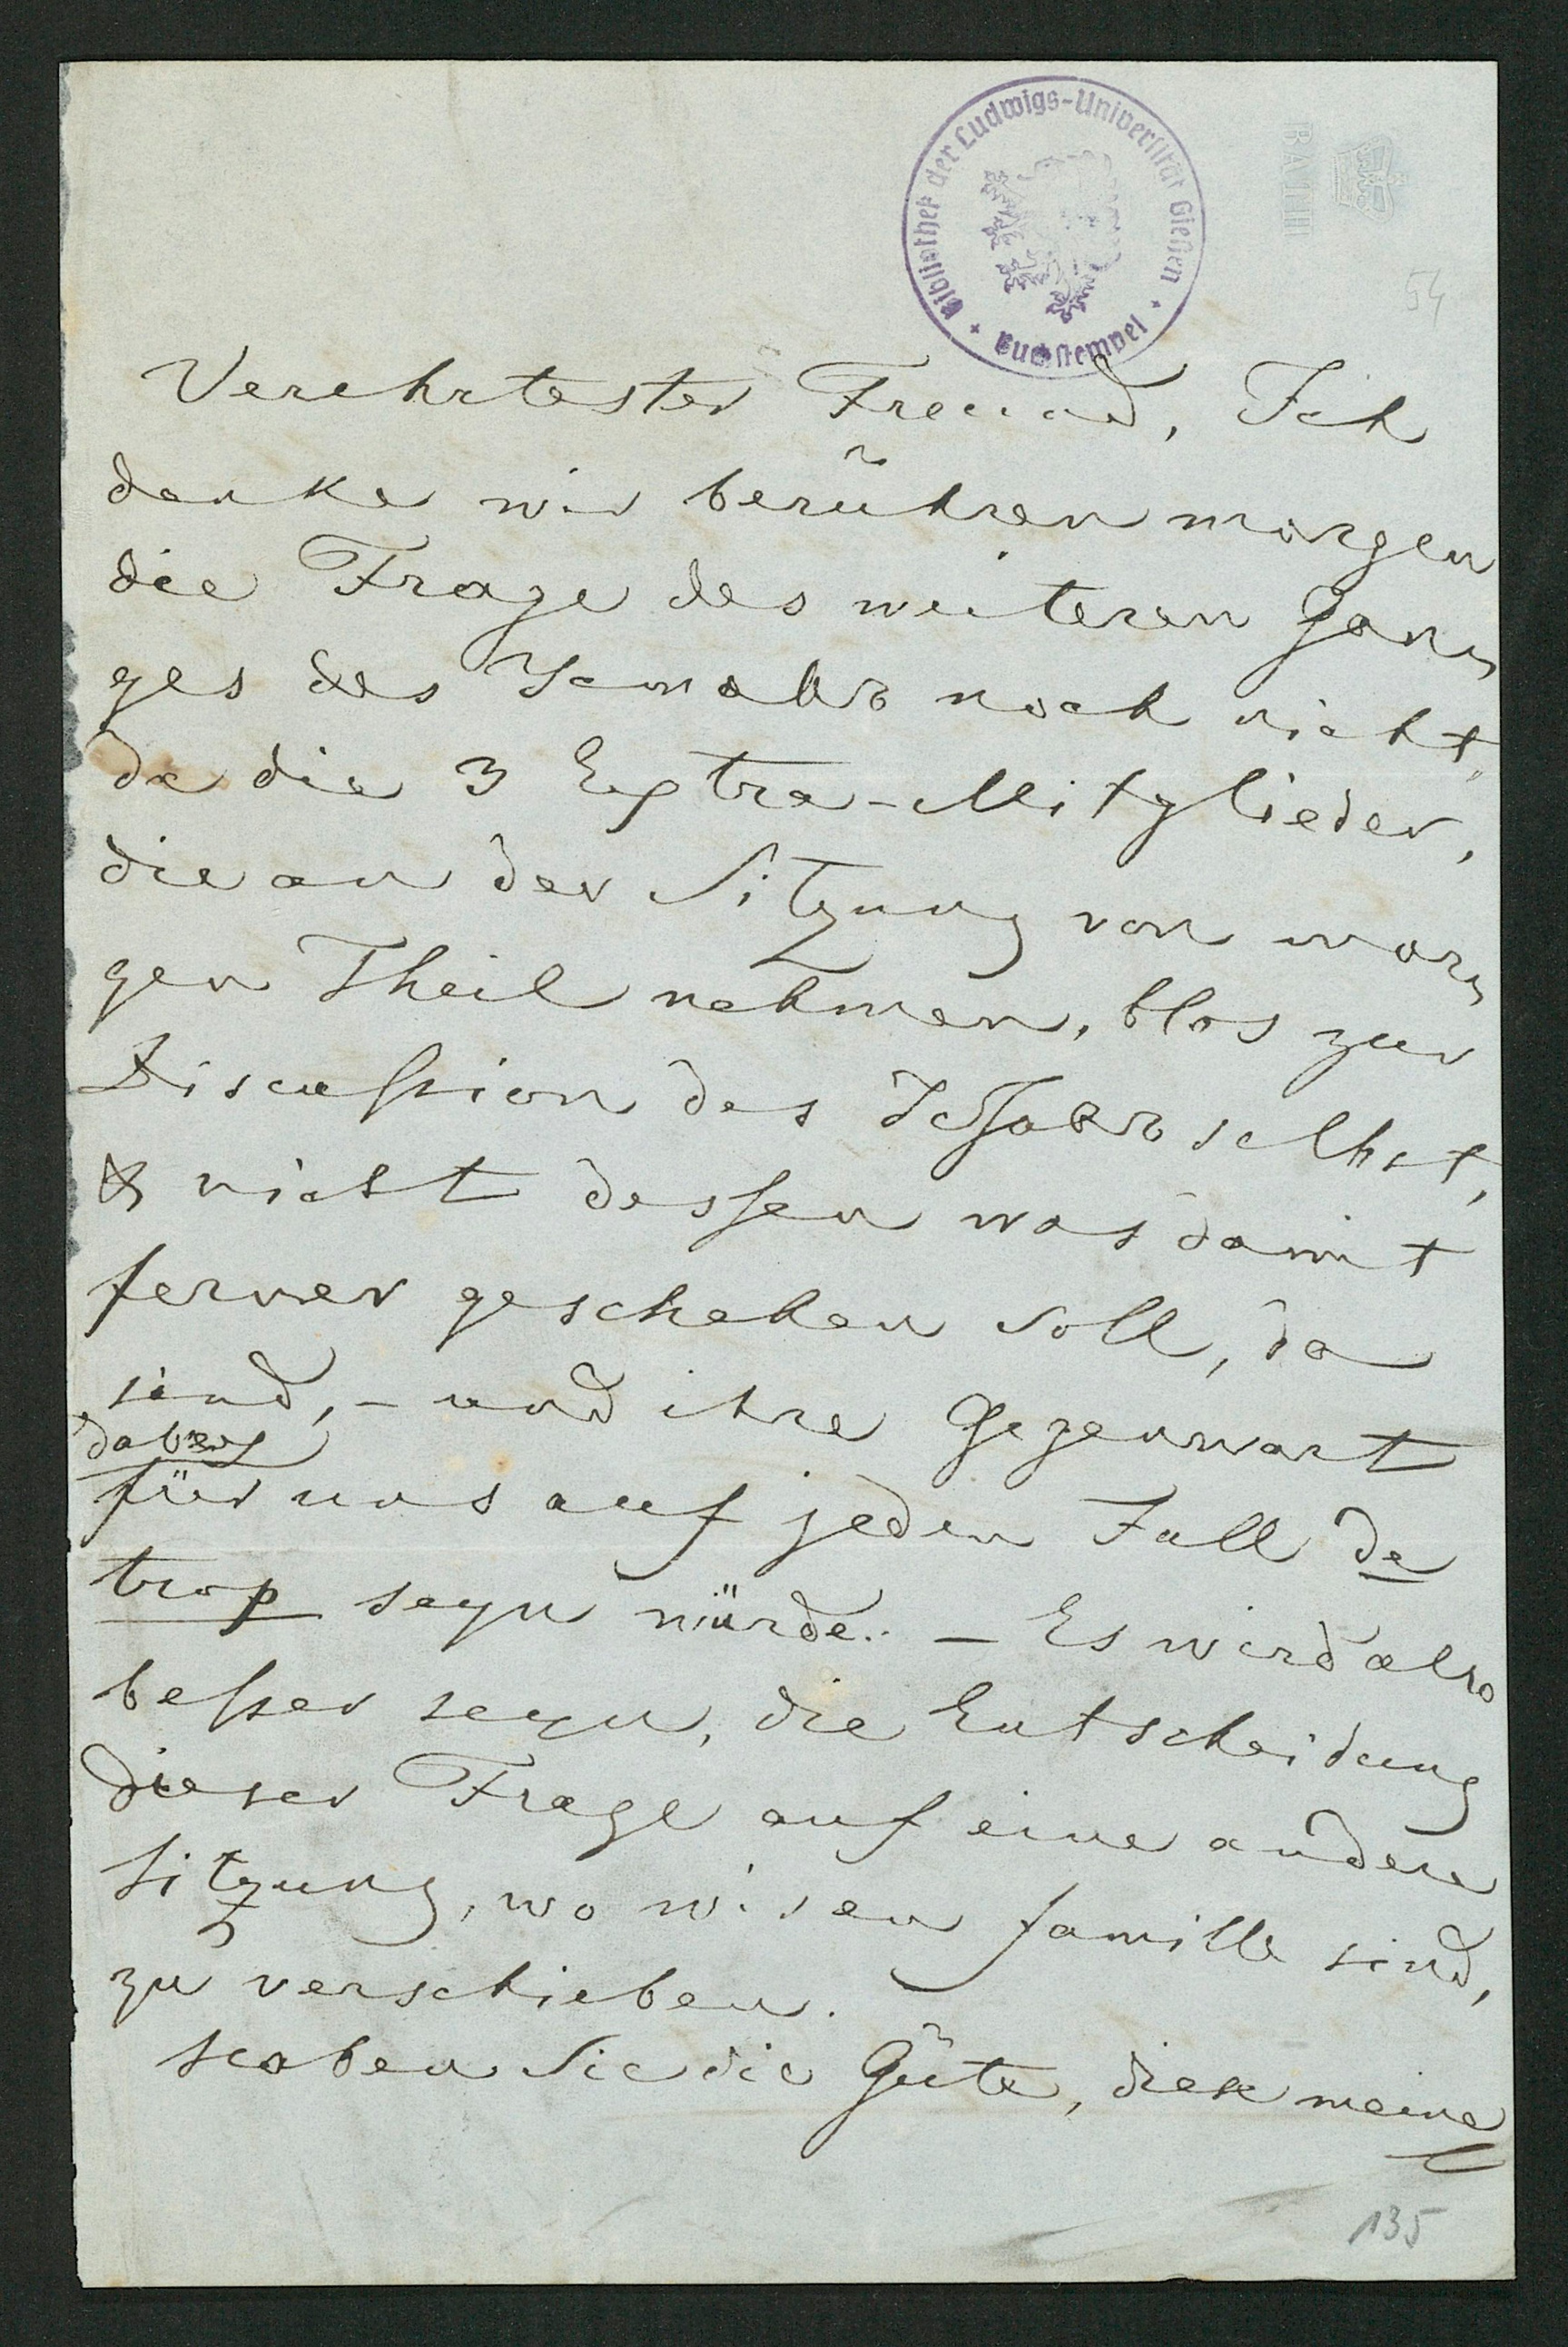 Bibliothek der Ludwigs-Universität Gießen
Buchstempel
BATH
54
Verehrtester Freund, Ich
denke wir berühren morgen
die Frage des weiteren Gan-
ges des noch nicht,
da die 3 Extra-Mitglieder,
die an der Sitzung von mor-
gen Theil nehmen, blos zur
Discussion des selbst,
& nicht dessen was damit
ferner geschehen soll, da
sind, - und ihre Gegenwart
dabey
für uns auf jeden Fall de
trop seyn würde. - Es wird also
besser seyn, die Entscheidung
dieser Frage auf eine andere
Sitzung, wo wir en famille sind,
zu verschieben.
Haben Sie die Güte, diese meine
135